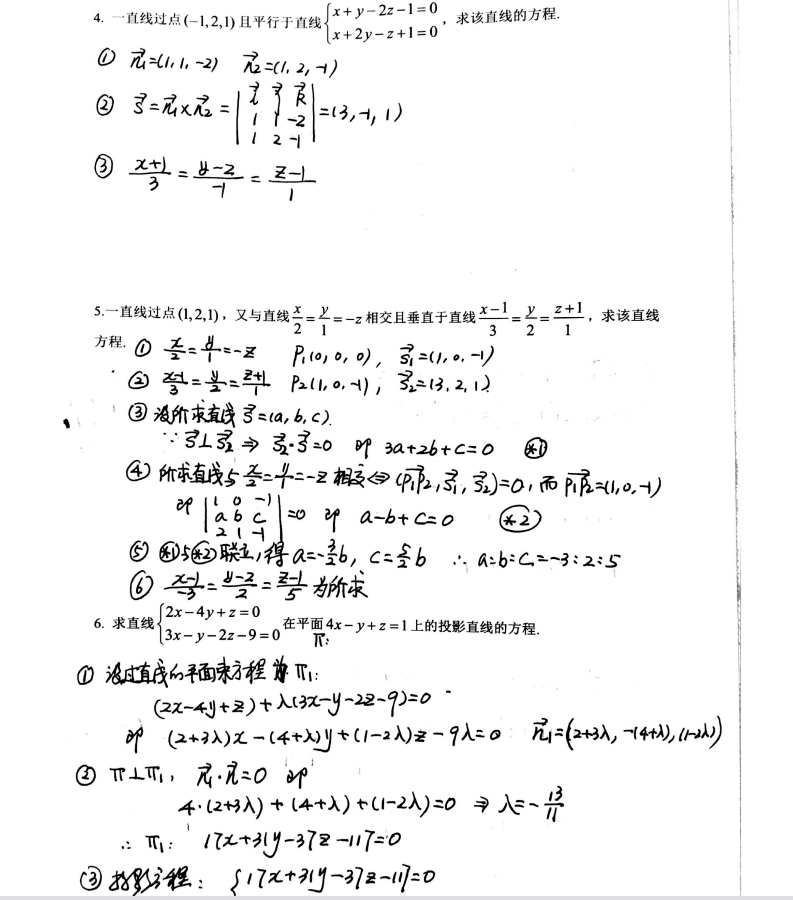 4. 一直线过点(−1,2,1)且平行于直线{x+y−2z−1=0, x+2y−z+1=0, 求该直线的方程.
① n₁=(1,1,-2) n₂=(1,2,-1)
② s=n₁×n₂= |i j k; 1 1 -2; 1 2 -1| =(3,-1,1)
③ (x+1)/3 = (y-2)/-1 = (z-1)/1
5.一直线过点(1,2,1),又与直线 x/2 = y/1 = −z 相交且垂直于直线 (x−1)/3 = y/2 = (z+1)/1,求该直线
方程. ① x/2 = y/1 = -z P₁(0,0,0), s₁=(1,0,-1)
② (x-1)/3 = y/2 = (z+1)/1 P₂(1,0,-1), s₂=(3,2,1)
③ 设所求直线 s=(a,b,c).
∵ s⊥s₂ ⇒ s₂·s=0 即 3a+2b+c=0 (*1)
④ 所求直线与 x/2 = y/1 = -z 相交⇔(P₁P₂,s₁,s₂)=0,而 P₁P₂=(1,0,-1)
即 |1 0 -1; a b c; 2 1 -1| =0 即 a-b+c=0 (*2)
⑤ (*1)与(*2)联立,得 a=-3/2 b, c=5/2 b ∴ a:b:c=-3:2:5
⑥ (x-1)/-3 = (y-2)/2 = (z-1)/5 为所求
6. 求直线{2x−4y+z=0, 3x−y−2z−9=0 在平面4x−y+z=1上的投影直线的方程.
π:
① 设过直线的平面束方程为 π₁:
(2x-4y+z)+λ(3x-y-2z-9)=0
即 (2+3λ)x-(4+λ)y+(1-2λ)z-9λ=0 n₁=(2+3λ, -(4+λ), (1-2λ))
② π⊥π₁, n₁·n=0 即
4·(2+3λ)+(4+λ)+(1-2λ)=0 ⇒ λ=-13/11
∴ π₁: 17x+31y-37z-117=0
③ 投影方程: {17x+31y-37z-117=0